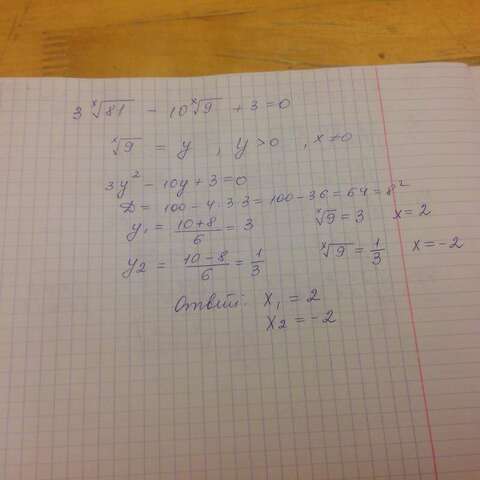 3 ˣ√81 − 10 ˣ√9 + 3 = 0
ˣ√9 = y , y > 0 , x ≠ 0
3y² − 10y + 3 = 0
D = 100 − 4 · 3 · 3 = 100 − 36 = 64 = 8²
y₁ = (10+8)/6 = 3 ˣ√9 = 3 x = 2
y₂ = (10−8)/6 = 1/3 ˣ√9 = 1/3 x = −2
Ответ: x₁ = 2
x₂ = −2